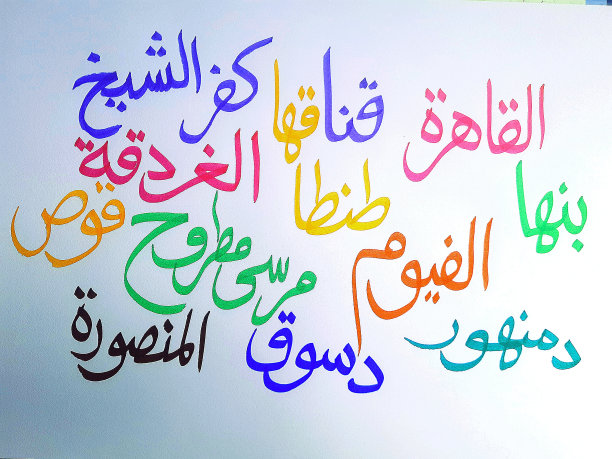 القاهرة قنا قها كفر الشيخ
بنها طنطا الغردقة
الفيوم مرسى مطروح قوص
دمنهور دسوق المنصورة